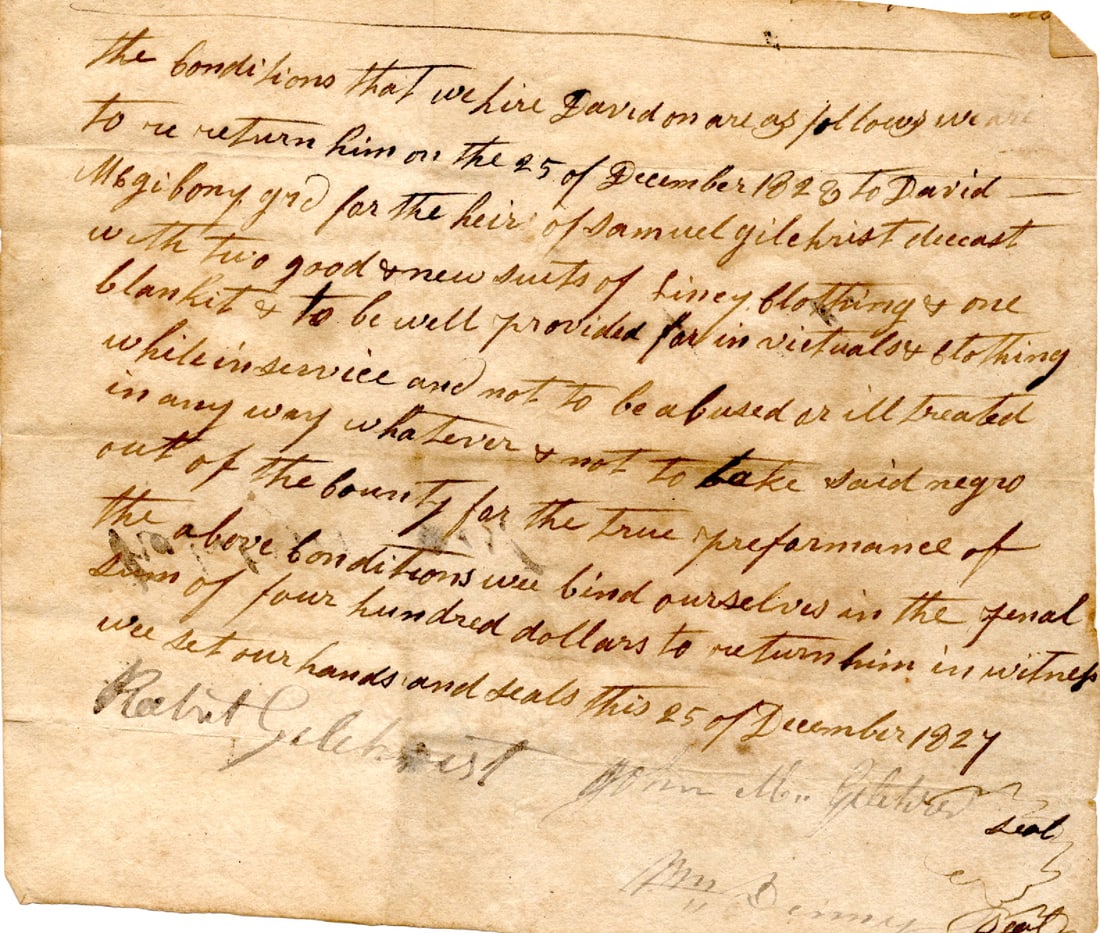 the Conditions that we hire David on are as follows we are
to re return him on the 25 of December 1828 to David —
Mcgibony grd for the heir of Samuel gilchrist deceast
with two good & new suits of Liney Clothing & one
blankit & to be well provided for in victuals & Clothing
while in service and not to be abused or ill treated
in any way whatever & not to take said negro
out of the County for the true preformance of
the above Conditions wee bind ourselves in the penal
sum of four hundred dollars to return him in witness
wee set our hands and seals this 25 of December 1827
Robert Gilchrist
John Mc Gilchris
seal
Wm Denny
Seal